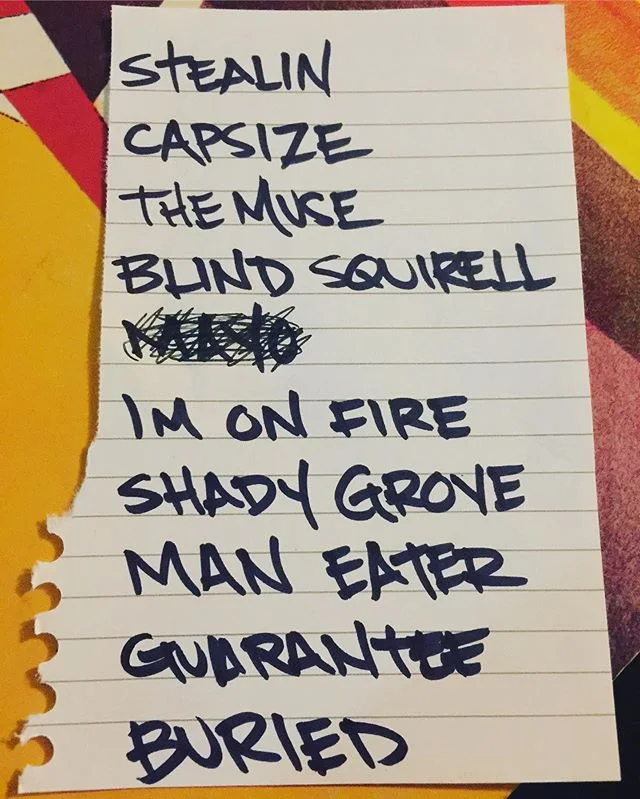 STEALIN
CAPSIZE
THE MUSE
BLIND SQUIRELL
IM ON FIRE
SHADY GROVE
MAN EATER
GUARANTEE
BURIED